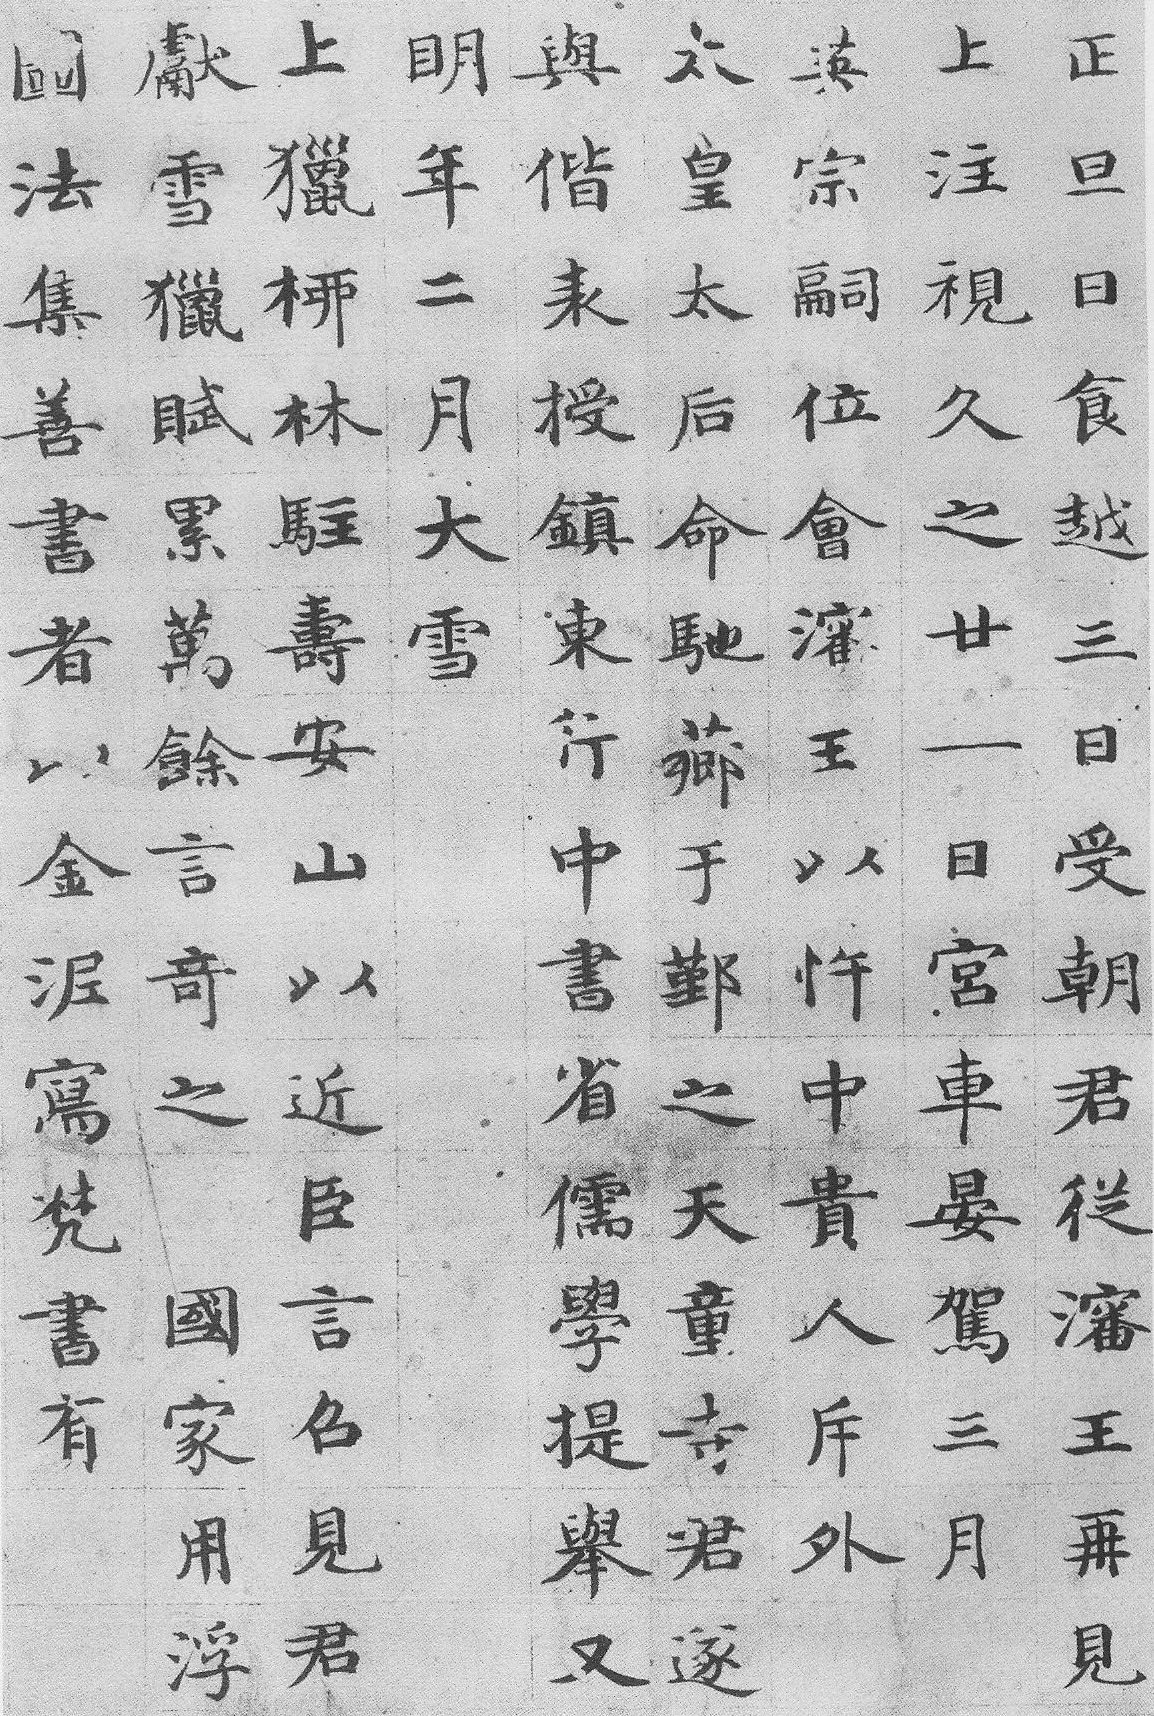 正旦日食越三日受朝君従瀋王再見
上注視久之廿一日宮車晏駕三月
英宗嗣位會瀋王以忤中貴人斥外
太皇太后命馳薌于鄞之天童寺君遂
與偕表授鎮東行中書省儒學提舉又
明年二月大雪
上獵栁林駐壽安山以近臣言召見君
獻雪獵賦累萬餘言奇之國家用浮
圖法集善書者以金泥寫梵書有